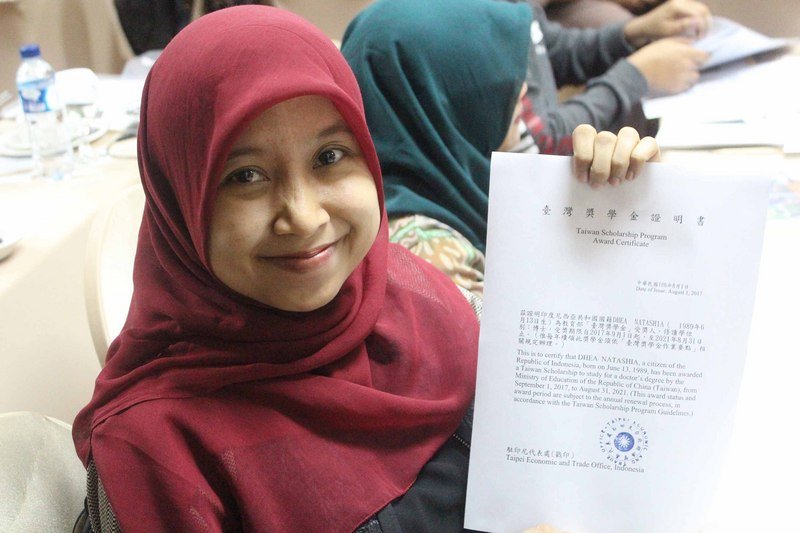 臺灣獎學金證明書
Taiwan Scholarship Program
Award Certificate
Date of Issue: August 1, 2017
茲證明印度尼西亞共和國國籍DHEA NATASHIA ( 1989年6
月13日生)為教育部「臺灣獎學金」受獎人，修讀學位
別：博士，受獎期限自2017年9月1日起，至2021年8月31日
止。(惟每年續領此獎學金須依「臺灣獎學金作業要點」相
關規定辦理。)
This is to certify that DHEA NATASHIA, a citizen of the
Republic of Indonesia, born on June 13, 1989, has been awarded
a Taiwan Scholarship to study for a doctor´s degree by the
Ministry of Education of the Republic of China (Taiwan), from
September 1, 2017, to August 31, 2021. (This award status and
award period are subject to the annual renewal process, in
accordance with the Taiwan Scholarship Program Guidelines.)
駐印尼代表處(戳印)
Taipei Economic and Trade Office, Indonesia